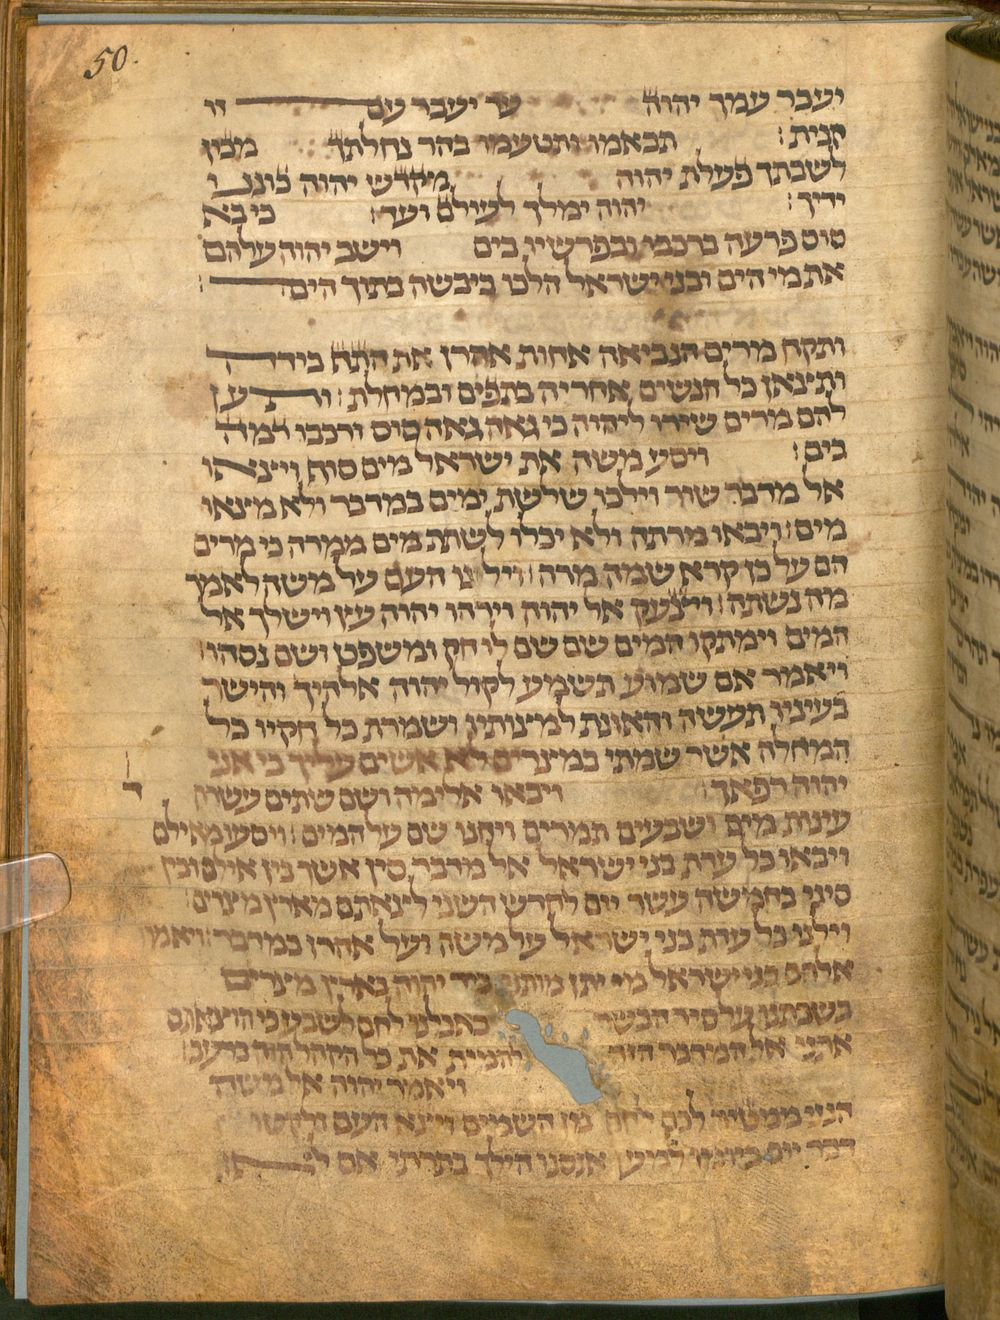 50.
יעבר עמך יהוה עד יעבר עם זו
קנית : תבאמו ותטעמו בהר נחלתך מכון
לשבתך פעלת יהוה מקדש יהוה כוננו
ידיך : יהוה ימלך לעולם ועד : כי בא
סוס פרעה ברכבו ובפרשיו בים וישב יהוה עלהם
את מי הים ובני ישראל הלכו ביבשה בתוך הים :
ותקח מרים הנביאה אחות אהרן את התף בידה
ותצאן כל הנשים אחריה בתפים ובמחלת : ותען
להם מרים שירו ליהוה כי גאה גאה סוס ורכבו רמה
בים : ויסע משה את ישראל מים סוף ויצאו
אל מדבר שור וילכו שלשת ימים במדבר ולא מצאו
מים : ויבאו מרתה ולא יכלו לשתת מים ממרה כי מרים
הם על כן קרא שמה מרה : וילנו העם על משה לאמר
מה נשתה : ויצעק אל יהוה ויורהו יהוה עץ וישלך אל
המים וימתקו המים שם שם לו חק ומשפט ושם נסהו :
ויאמר אם שמוע תשמע לקול יהוה אלהיך והישר
בעיניו תעשה והאזנת למצותיו ושמרת כל חקיו כל
המחלה אשר שמתי במצרים לא אשים עליך כי אני
יהוה רפאך : ויבאו אלימה ושם שתים עשרה
עינות מים ושבעים תמרים ויחנו שם על המים : ויסעו מאילם
ויבאו כל עדת בני ישראל אל מדבר סין אשר בין אילם ובין
סיני בחמשה עשר יום לחדש השני לצאתם מארץ מצרים :
וילנו כל עדת בני ישראל על משה ועל אהרן במדבר : ויאמרו
אלהם בני ישראל מי יתן מותנו ביד יהוה בארץ מצרים
בשבתנו על סיר הבשר באכלנו לחם לשבע כי הוצאתם
אתנו אל המדבר הזה להמית את כל הקהל הזה ברעב :
ויאמר יהוה אל משה
הנני ממטיר לכם לחם מן השמים ויצא העם ולקטו
דבר יום ביומו למען אנסנו הילך בתורתי אם לא